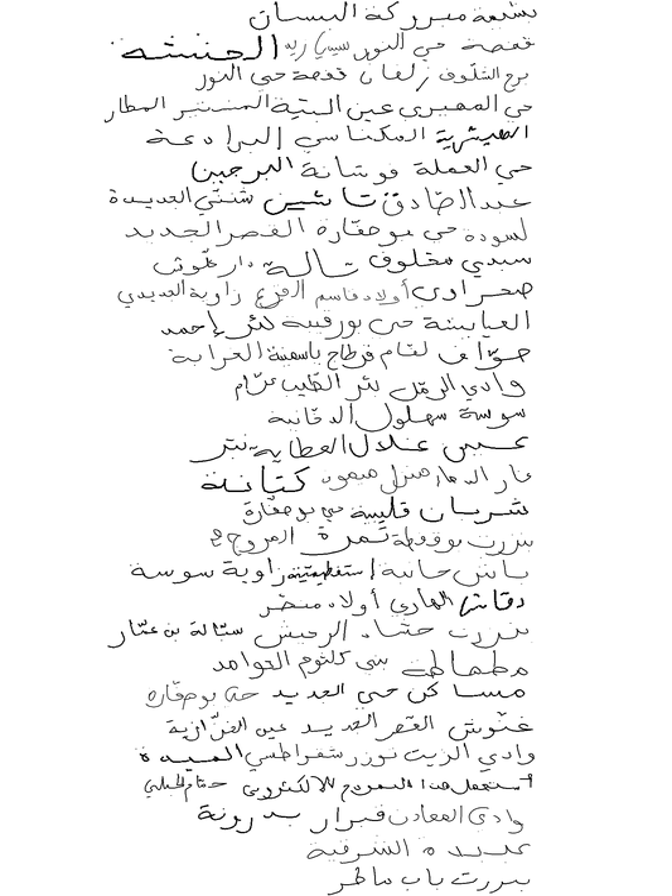 بشيمة مبروكة البسان
قفصة حي النور سيدي زيد الحنشه
برج الشلوف زلفان قفصة حي النور
حي المهيري عين البتية المستير المطار
الهيشرية المكناسي البرادعة
حي العملة فوشانة البرجين
عبد الصادق تاشين شنني الجديدة
لسودة حي بوصفارة القصر الجديد
سيدي مخلوف تالة دار علوش
صحراوي أولاد قاسم القرع زاوية الجديدي
العبابشة حي بورقيبة بئر إحمد
حوّاف لمام قرطاج ياسمينة الغرابة
وادي الرمل بئر الطيب عرّام
سوسة سهلول الدقانية
عيسى علال العطاية نبّر
غار الدماء منزل ميمون كتانة
شربان قليبية حي بوصفّارة
بنزرت بوقوطة تمرة المروج 2
ياسمينة زاوية سوسة
دقاش الهادي أولاد منصر
بنزرت حشاد الرميش ستالة بن عمّار
مطماطة بني كلثوم القوامد
مساكن حي الجديد حي بوصفّارة
غنّوش القصر الجديد عين الفرّازية
وادي الزيت توزر شقراطسي الميدة
استعمل هذا النموذج الالكتروني حمام الجبلي
وادي المعادن قبرار بدرونة
عبيدة الشرقية
بنزرت باب ماطر